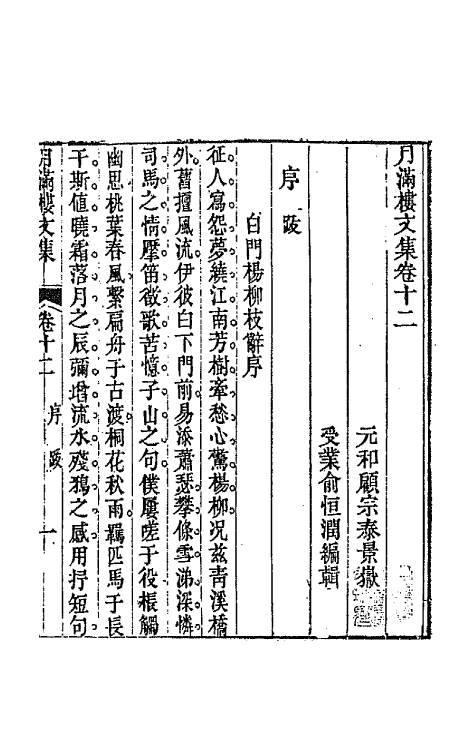 月滿樓文集卷十二
元和顧宗泰景嶽
受業俞恒潤編輯
序跋
白門楊柳枝辭序
征人寫怨夢繞江南芳樹牽愁心驚楊柳。況茲青溪橋
外。舊擅風流。伊彼白下門前。易添蕭瑟。攀條雪涕。深憐
司馬之情。壓笛徵歌。苦憶子山之句。僕屢嗟于役。棖觸
幽思。桃葉春風。繫扁舟于古渡。桐花秋雨。羈匹馬于長
干。斯値曉霜落月之辰。彌増流水殘鴉之感。用抒短句
月滿樓文集 卷十二 序跋 一